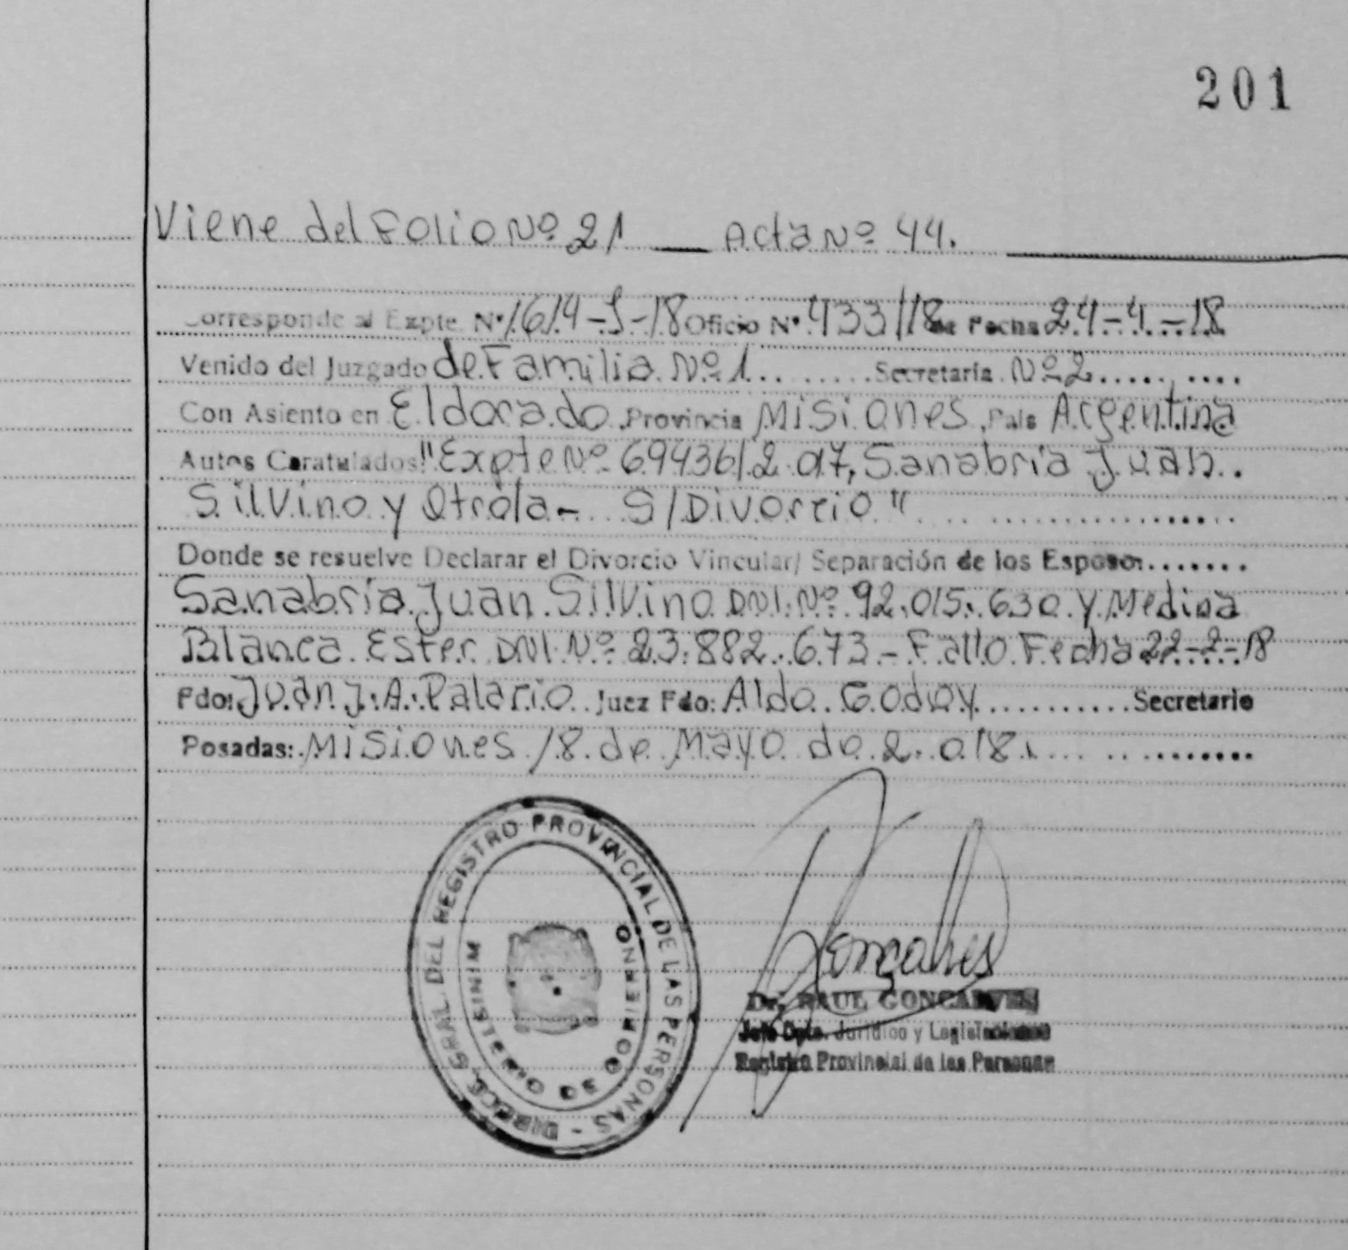 201
Viene del Folio Nº 21 — Acta Nº 44.
Corresponde al Expte. Nº 1614-J-18 Oficio Nº 433/18 de Fecha 24-4-18
Venido del Juzgado de Familia Nº 1 ........ Secretaría Nº 2 .........
Con Asiento en Eldorado Provincia Misiones País Argentina
Autos Caratulados "Expte Nº 69436/2.017, Sanabria Juan
Silvino y Otro/a - S/Divorcio" ................
Donde se resuelve Declarar el Divorcio Vincular/ Separación de los Esposos .......
Sanabria Juan Silvino DNI. Nº 92.015.630 y Medina
Blanca Ester DNI. Nº 23.882.673 - Fallo Fecha 22-2-18
Fdo: Juan J. A. Palario Juez Fdo: Aldo Godoy .......... Secretario
Posadas: Misiones 18 de Mayo de 2.018. .........
DIRECC. GRAL. DEL REGISTRO PROVINCIAL DE LAS PERSONAS -
MINISTERIO DE GOBIERNO
Gonçalves
Dr. RAUL GONCALVES
Jefe Dpto. Jurídico y Legislaciones
Registro Provincial de las Personas